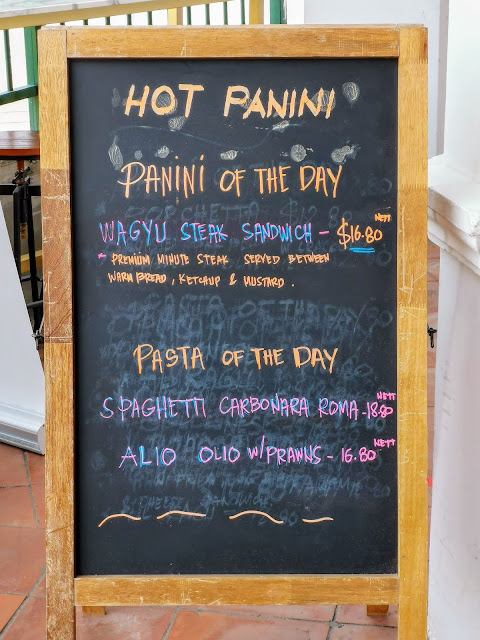 HOT PANINI
PANINI OF THE DAY
WAGYU STEAK SANDWICH - $16.80 NETT
- PREMIUM MINUTE STEAK SERVED BETWEEN
WARM BREAD, KETCHUP & MUSTARD.
PASTA OF THE DAY
SPAGHETTI CARBONARA ROMA - 18.80 NETT
ALIO OLIO W/PRAWNS - 16.80 NETT